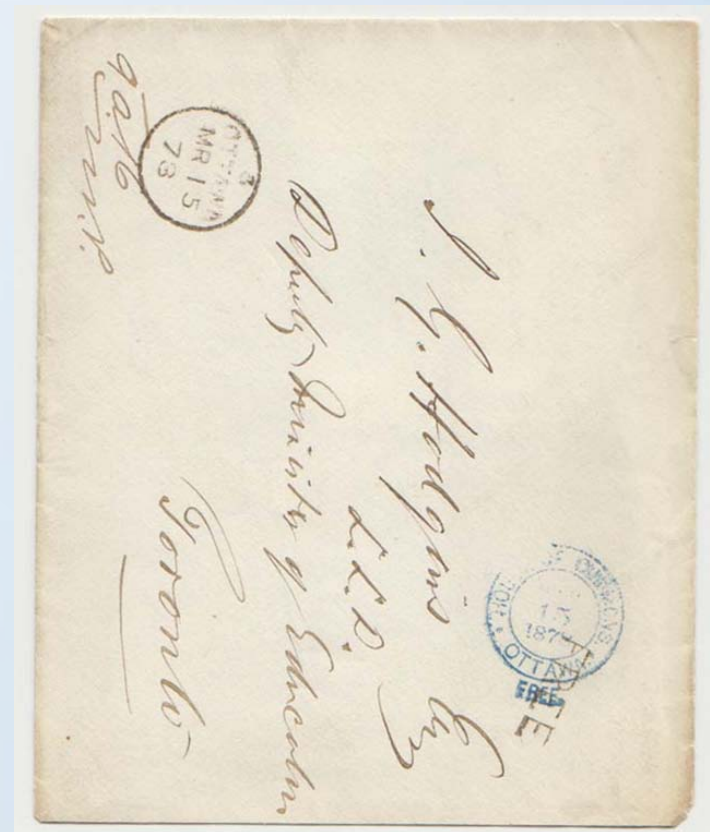 J. G. Hodgins Esq
L.L.D.
Deputy Minister of Education
Toronto
M.P.
3
OTTAWA
MR 15
78
HOUSE OF COMMONS
15
1878
OTTAWA
FREE
FREE